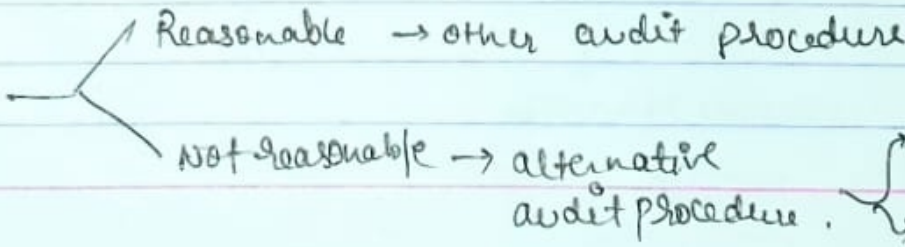 Reasonable → other audit procedure
Not reasonable → alternative
audit procedure.